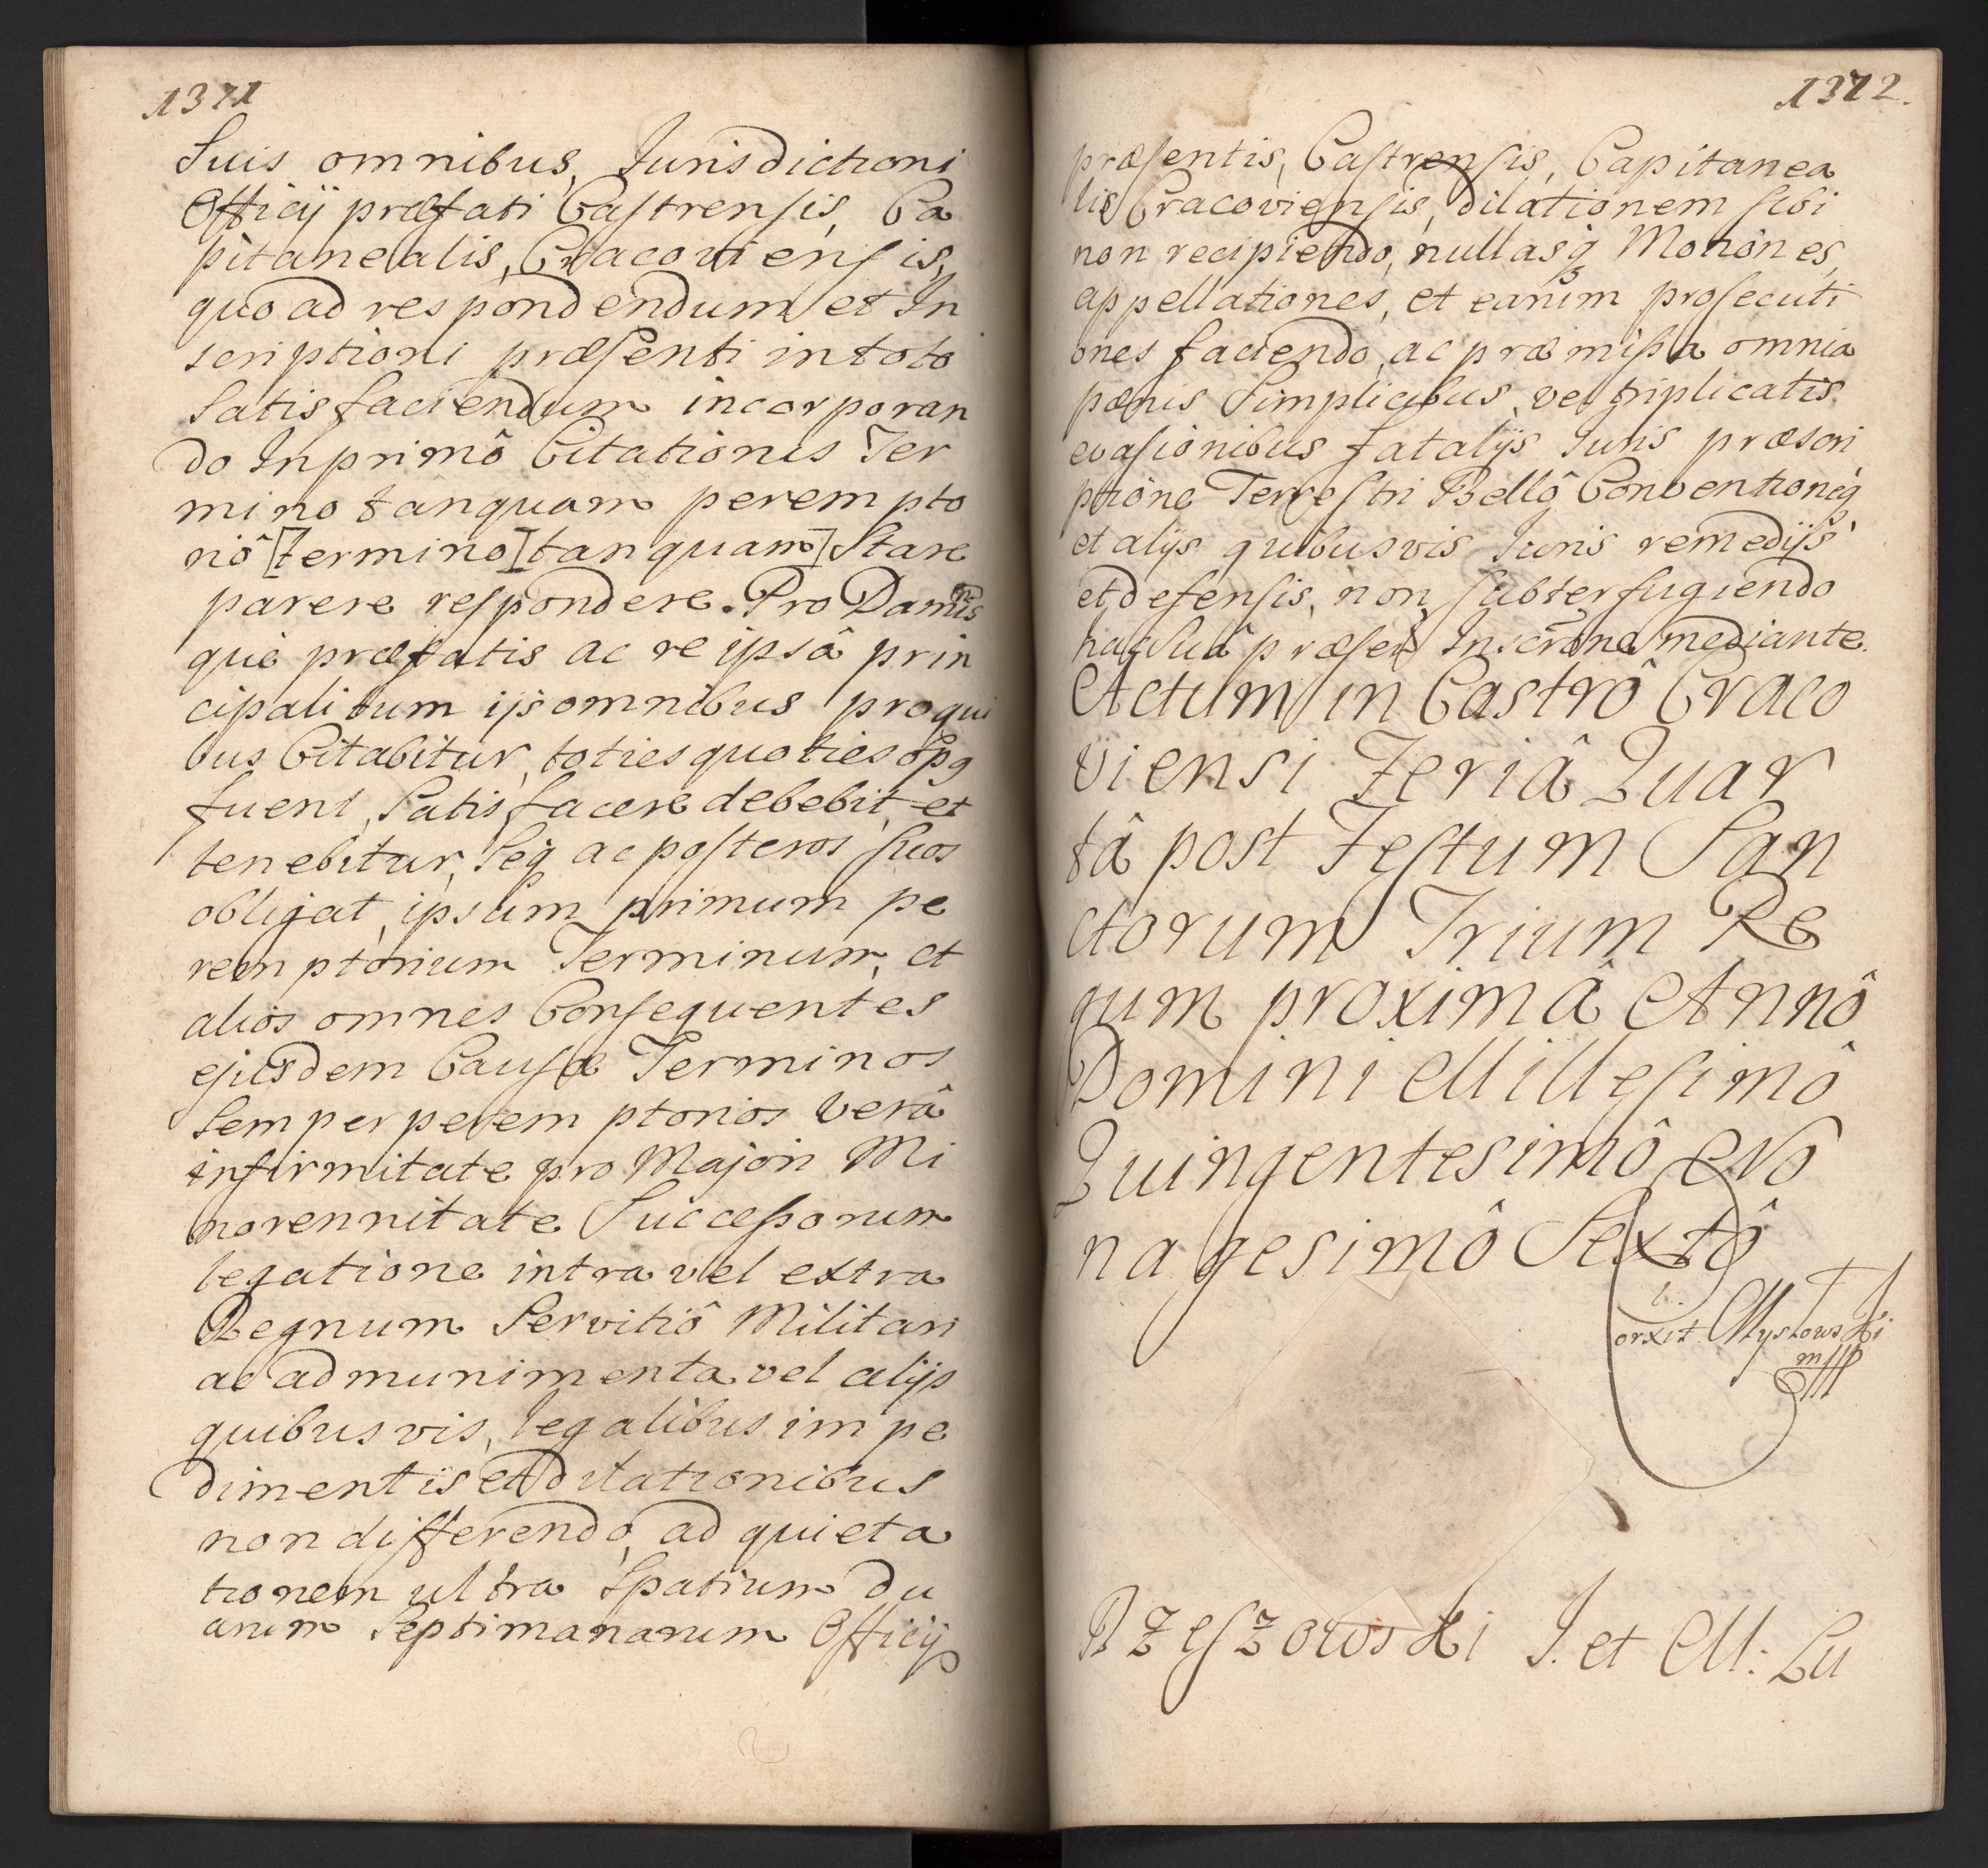 1371
Suis omnibus, Jurisdictioni
Officij præfati Castrensis, Ca
pitanealis, Cracoviensis,
quo ad respondendum et In
scriptioni præsenti in toto
Satisfaciendum incorporan
do Inprimô Citationis Ter
mino tanquam perempto
riô [termino] tanquam] Stare
parere respondere. Pro Damnis
que præfatis ac re ipsâ prin
cipali tum ijs omnibus pro qui
bus Citabitur, toties quoties opq
fuerit, Satisfacere debebit, et
tenebitur, Seq ac posteros suos
obligat, ipsum primum pe
remptorium Terminum, et
alios omnes Consequentes
ejusdem Causæ Terminos
Semper peremptorios Verâ
infirmitate pro Majori Mi
norennitate Successorum
legatione intra vel extra
Regnum Servitiô Militari
ac ad munimenta vel alijs
quibusvis, legalibus impe
dimentis et dilationibus
non differendo, ad quieta
tionem ultra Spatium du
arum Septimanarum Officij
1372.
præsentis, Castrensis, Capitanea
lis Cracoviensis, dilationem sibi
non recipiendo, nullasq Motiônes,
appellationes, et earum prosecuti
ones faciendo, ac præmissa omnia
pœnis Simplicibus, vel triplicatis
evasionibus fatalijs Juris præscri
ptiône Terrestri Bellô Conventioneq
et alijs quibusvis Juris remedijs
et defensis, non subterfugiendo
hac Suâ præsen Inscrône mediante.
Actum in Castrô Craco
viensi Feriâ Quar
tâ post Festum San
ctorum Trium Re
gum proximâ Annô
Domini Millesimô
Quingentesimô No
nagesimô Sextô
orxit Mystowski
mpp
Rzeszowski J. et M: Lu